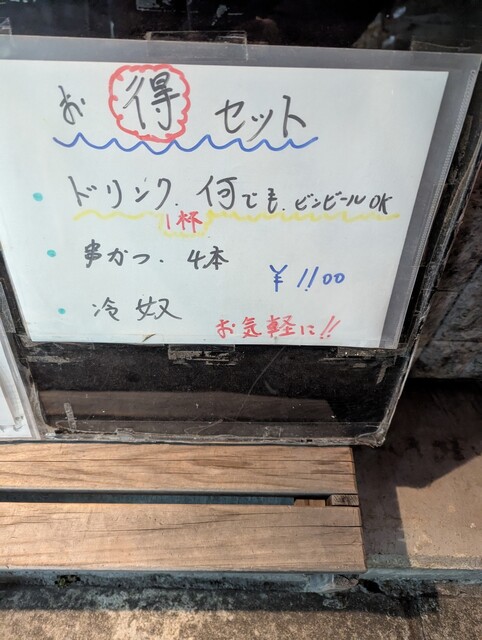 お得セット
ドリンク.何でも.ビンビールOK
1杯
串かつ.4本
¥1100
冷奴
お気軽に!!